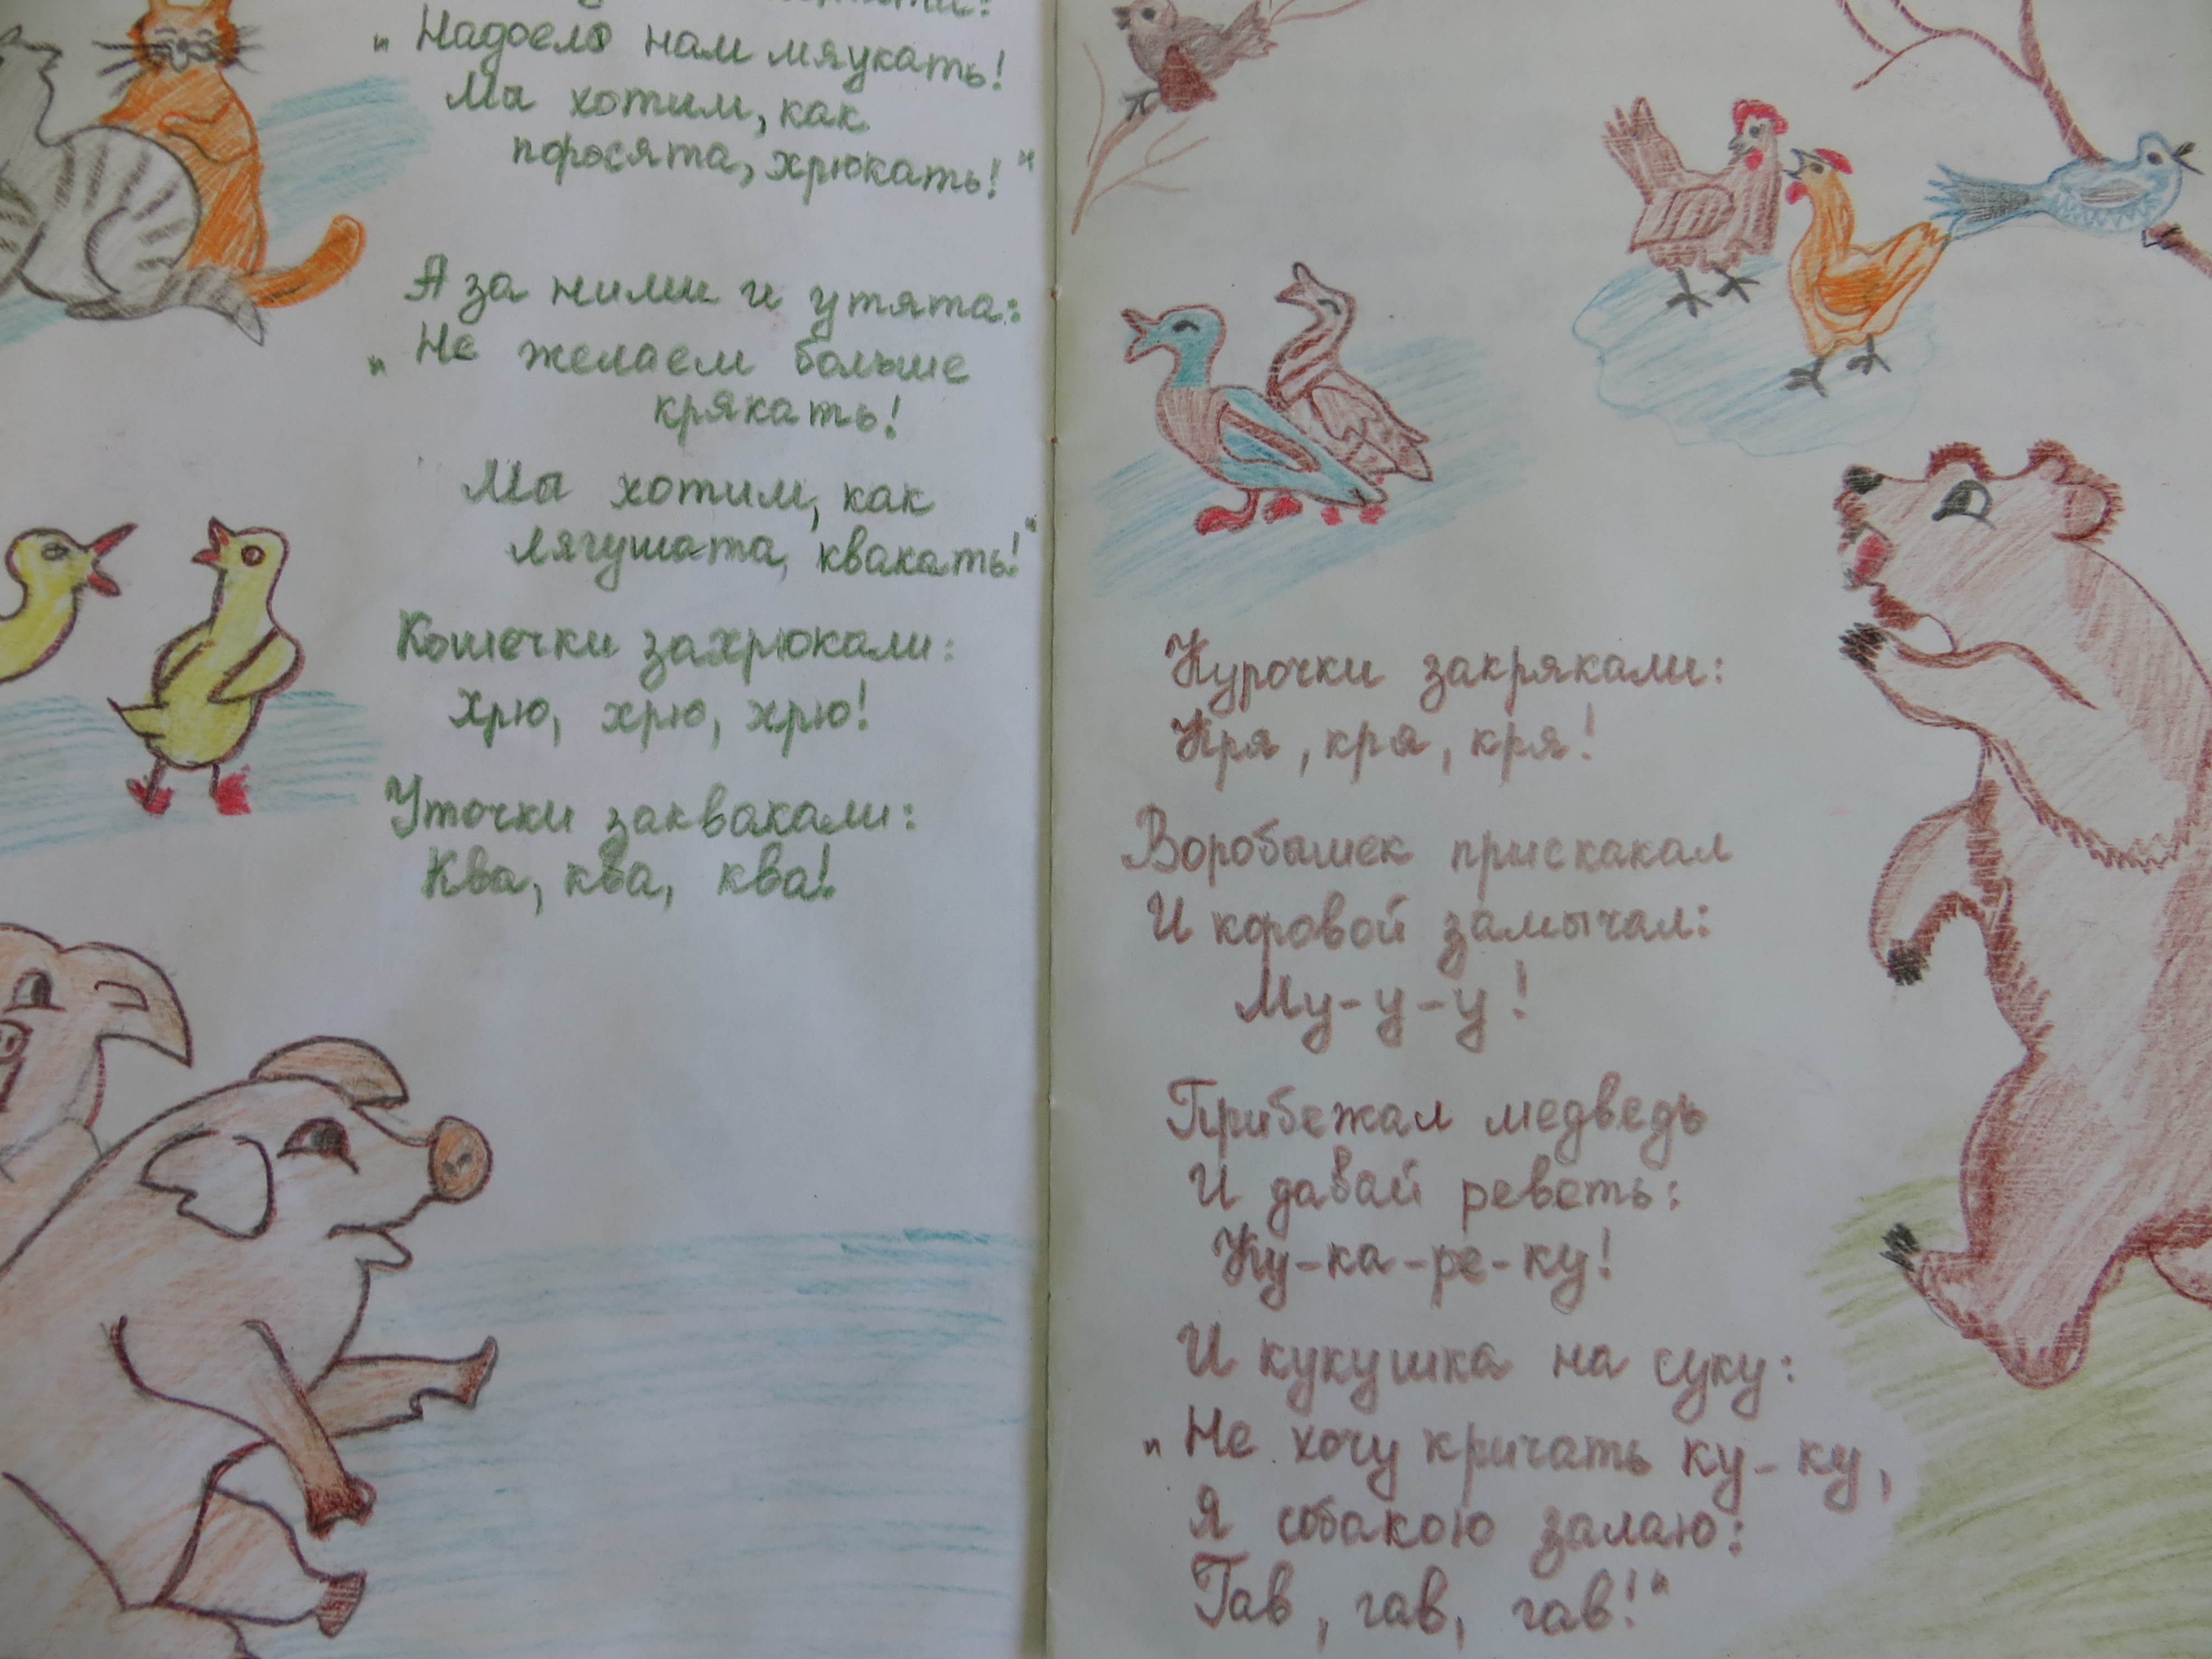 „Надоело нам мяукать!
Мы хотим, как
поросята, хрюкать!"
А за ними и утята:
„Не желаем больше
крякать!
Мы хотим, как
лягушата, квакать!"
Кошечки захрюкали:
Хрю, хрю, хрю!
Уточки заквакали:
Ква, ква, ква!
Курочки закрякали:
Кря, кря, кря!
Воробышек прискакал
И коровой замычал:
Му-у-у!
Прибежал медведь
И давай реветь:
Ку-ка-ре-ку!
И кукушка на суку:
„Не хочу кричать ку-ку,
Я собакою залаю:
Гав, гав, гав!"